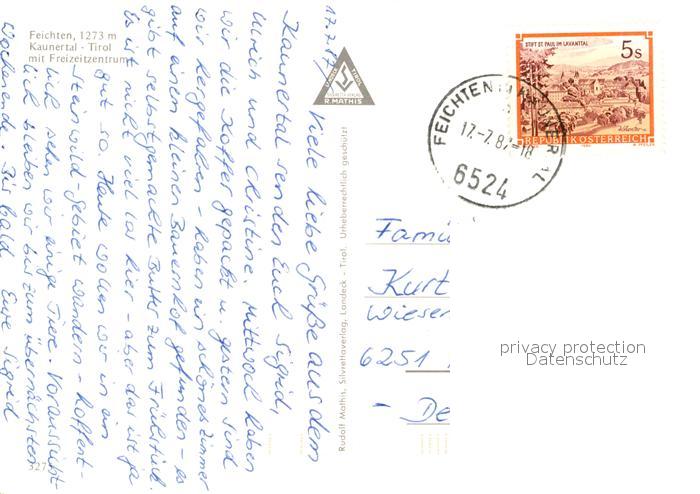 Feichten, 1273 m
Kaunertal - Tirol
mit Freizeitzentrum
17.7.87
Viele liebe Grüße aus dem
Kaunertal senden Euch Sigrid,
Ulrich und Christine. Mittwoch haben
wir die Koffer gepackt u. gestern sind
wir hergefahren - haben ein schönes Zimmer
auf einem kleinen Bauernhof gefunden - es
gibt selbstgemachte Butter zum Frühstück.
Es ist nicht viel los hier - aber das ist ja
gut so. Heute wollen wir in ein
Steinwild-gebiet wandern - hoffent-
lich sehen wir einige Tiere. Voraussicht-
lich bleiben wir bis zum übernächsten
Wochenende. Bis bald Eure Sigrid
327
R. MATHIS
Rudolf Mathis, Silvrettaverlag, Landeck - Tirol. Urheberrechtlich geschützt
STIFT ST. PAUL IM LAVANTTAL
5 s
REPUBLIK ÖSTERREICH
FEICHTEN IM KAUNERTAL
17.-7.87-18
6524
Fami
Kurt
Wiesen
6251
- De
privacy protection
Datenschutz